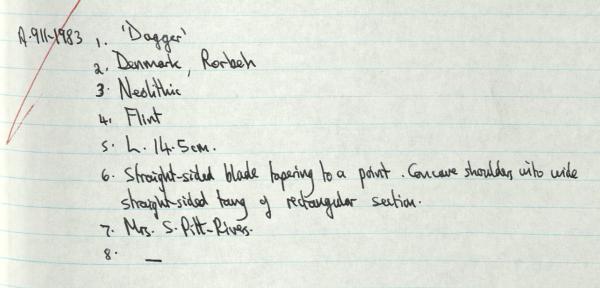 A.911-1983 1. 'Dagger'
2. Denmark, Rorbeh
3. Neolithic
4. Flint
5. L. 14.5cm.
6. Straight-sided blade tapering to a point. Concave shoulders into wide
straight-sided tang of rectangular section.
7. Mrs. S. Pitt-Rivers.
8. —